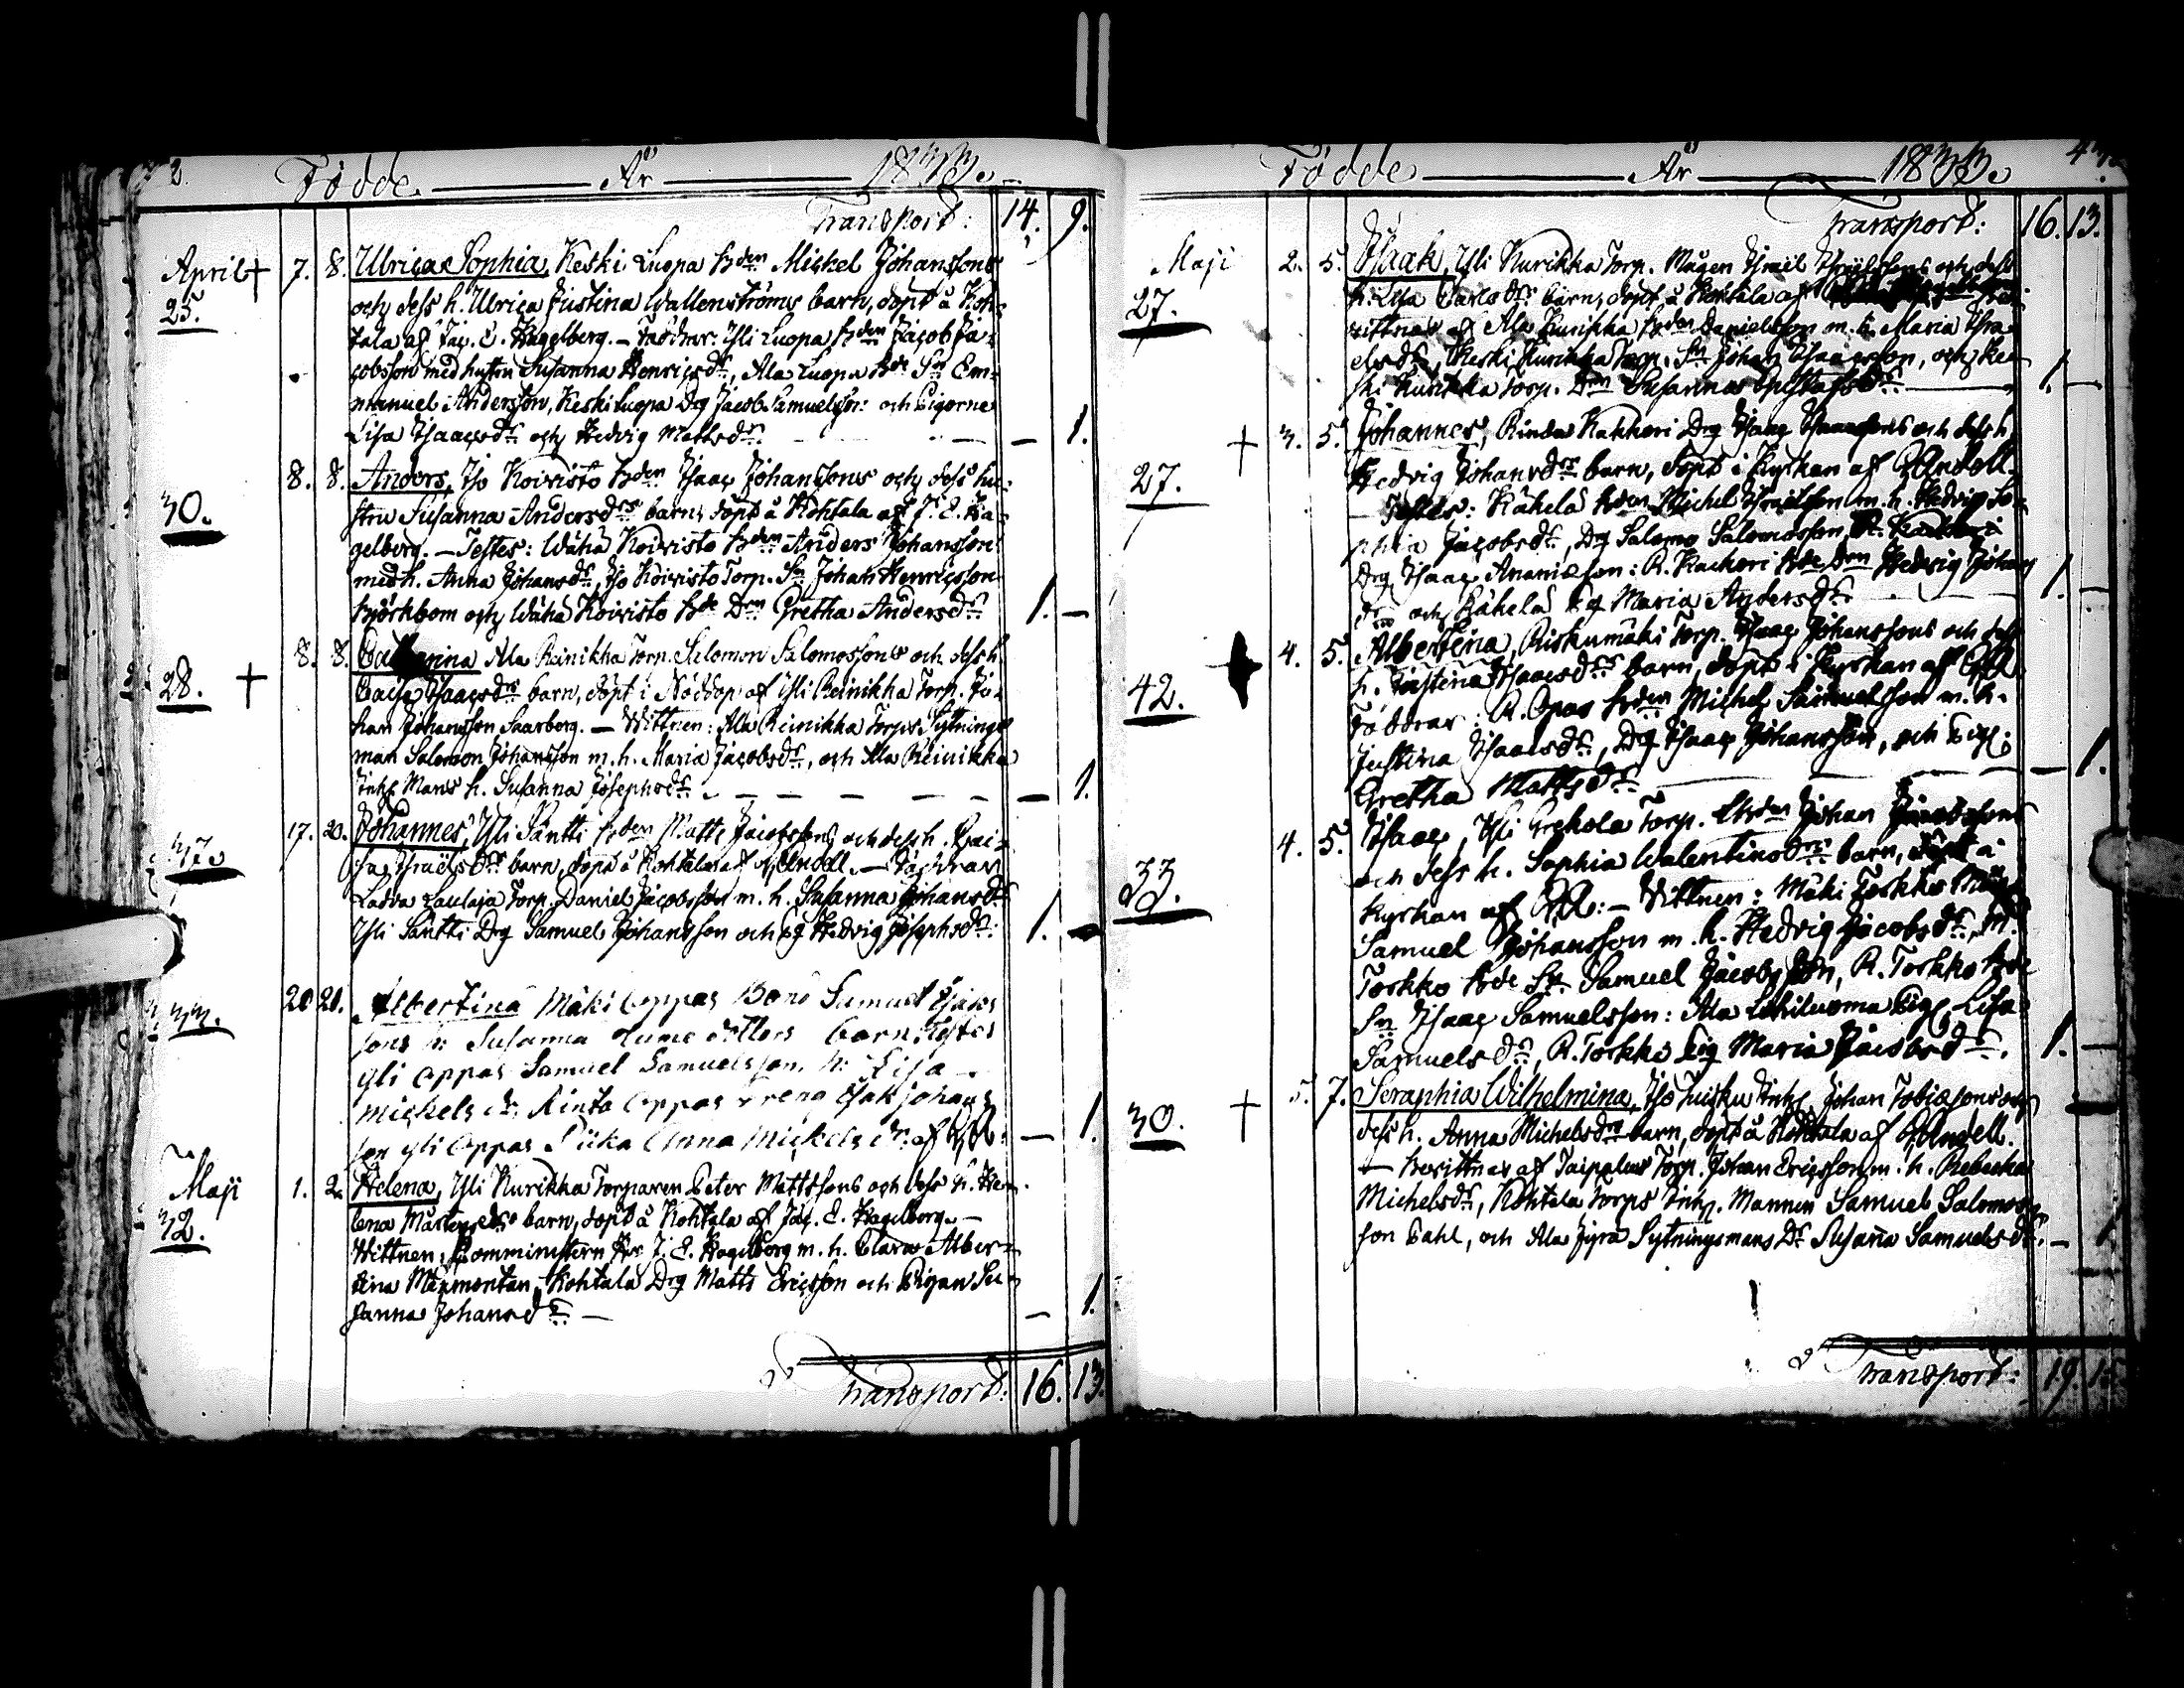 Födde År 1833.
Transport: 14. 9.
April + 7. 8. Ulrica Sophia, Keski Luopa Bden Michel Johanssons
25. och dess h. Ulrica Justina Wallenströms barn, döpt å Koh-
tala af Jac. E. Hagelberg. – Faddrar: Yli Luopa Bden Jacob Ja-
cobsson med hustru Susanna Henricsdr, Ala Luopa Bde Sn Em-
manuel Andersson, Keski Luopa Drg Jacob Samuelsson: och Pigorne
Lisa Isaacsdr och Hedvig Mattsdr. — 1.
8. 8. Anders, Iso Koivisto Bden Isaac Johanssons och dess hu-
30. stru Susanna Andersdrs barn, döpt å Kohtala af J. E. Ha-
gelberg. – Testes: Wähä Koivisto Bden Anders Johansson
med h. Anna Johansdr, Iso Koivisto Torp. Sn Johan Henricsson
Björkbom och Wähä Koivisto Bde Drn Gretha Andersdr 1. —
8. 8. Catharina Ala Reinikka Torp. Salomon Salomossons och dess h.
28. + Caisa Isaacsdrs barn, döpt i Nöddop af Yli Reinikka Torp. Jo-
han Johansson Saarberg. – Vittnen: Ala Reinikka Torps Sytnings
man Salomon Johansson m. h. Maria Jacobsdr, och Ala Reinikka
Inh. Mans h. Susanna Josephsdr. — 1.
17. 20. Johannes, Yli Säntti Bden Matts Jacobssons och dess h. Cai-
37. sa Israelsdrs barn, döpt å Kohtala af Andell. – Faddrar
Ladva Laulaja Torp. Daniel Jacobsson m. h. Susanna Johansdr
Yli Säntti Drg Samuel Johansson och Pig Hedvig Josephsdr: 1. —
20 20. Albertina Mäki Oppas Bond Samuel Isaks
33. sons h: Susanna barn, Testes
Yli Oppas Samuel Samuelsson h: Lisa
Mickels dr, Rinta Oppas Dreng Isak Johans
son Yli Oppas Piika Anna Mickels dr: af — 1.
Maji 1. 2. Helena, Yli Kurikka Torparen Peter Mattssons och dess h. He-
32. lena Mårtensdrs barn, döpt å Kohtala af Jac. E. Hagelberg. –
Vittnen: Comministern Hr J. E. Hagelberg m. h. Clara Alber-
tina Maxmontan, Kohtala Drg Matts Ericsson och Pigan Su-
sanna Johansdr – — 1.
Transport: 16. 13.
Födde År 1833. 43.
Transport: 16. 13.
Maji 2. 5. Isaak, Yli Kurikka Torp. Mågen Israel Israelssons och dess
27. h. Lisa Carlsdrs barn, döpt å Kohtala af
vittnas af Ala Kurikka Bden Danielsson m. h. Maria Isra-
elsdr, Keski Kurikka Torp. Sn Johan Isaacsson, och Ke-
ski Kurikka Torp. Drn Susanna Gustafsdr 1. —
+ 3. 5. Johannes, Rinda Kakkori Drg Isaac Isaacssons och dess h.
27. Hedvig Johansdrs barn, döpt i Kyrkan af Andell.
– Testes: Kähelä Bden Michel Israelsson m. h. Hedvig So-
phia Jacobsdr, Drg Salomo Salomosson,
Drg Isaac Ananiæson: R. Kackori Bde Drn Hedvig Johans
dr och Kähelä Pig Maria Andersdr 1. —
4. 5. Albertina, Riskumäki Torp. Isaac Johanssons och dess
42. h. Justina Isaacsdrs barn, döpt i Kyrkan af
Faddrar: R. Opas Bden Michel Samuelsson m. h.
Justina Isaacsdr, Drg Isaac Johansson, och Pig.
Gretha Mattsdr — 1.
4. 5. Isaac, Yli Grekola Torp. Johan Jacobssons
33. och dess h. Sophia Valentinsdrs barn, döpt i
Kyrkan af – Vittnen: Mäki Torkko
Samuel Johansson m. h. Hedvig Jacobsdr, M.
Torkko Bde Sn Samuel Jacobsson, R. Torkko Bde
Sn Isaac Samuelsson: Ala Lehiluoma Pig. Lisa
Samuelsdr, R. Torkko Pig Maria Jacobsdr. 1. —
+ 5. 7. Seraphia Wilhelmina, Iso Tuisku Inh. Johan Tobiæsons och
30. dess h. Anna Michelsdrs barn, döpt å Kohtala af Andell.
– Bevittnas af Taipalus Torp. Johan Ericsson m. h. Rebecka
Michelsdr, Kohtala Torps Inh. Mannen Samuel Salomos-
son Dahl, och Ala Jyrä Sytningsmans Dr Susanna Samuelsdr. — 1
Transport: 19. 15.